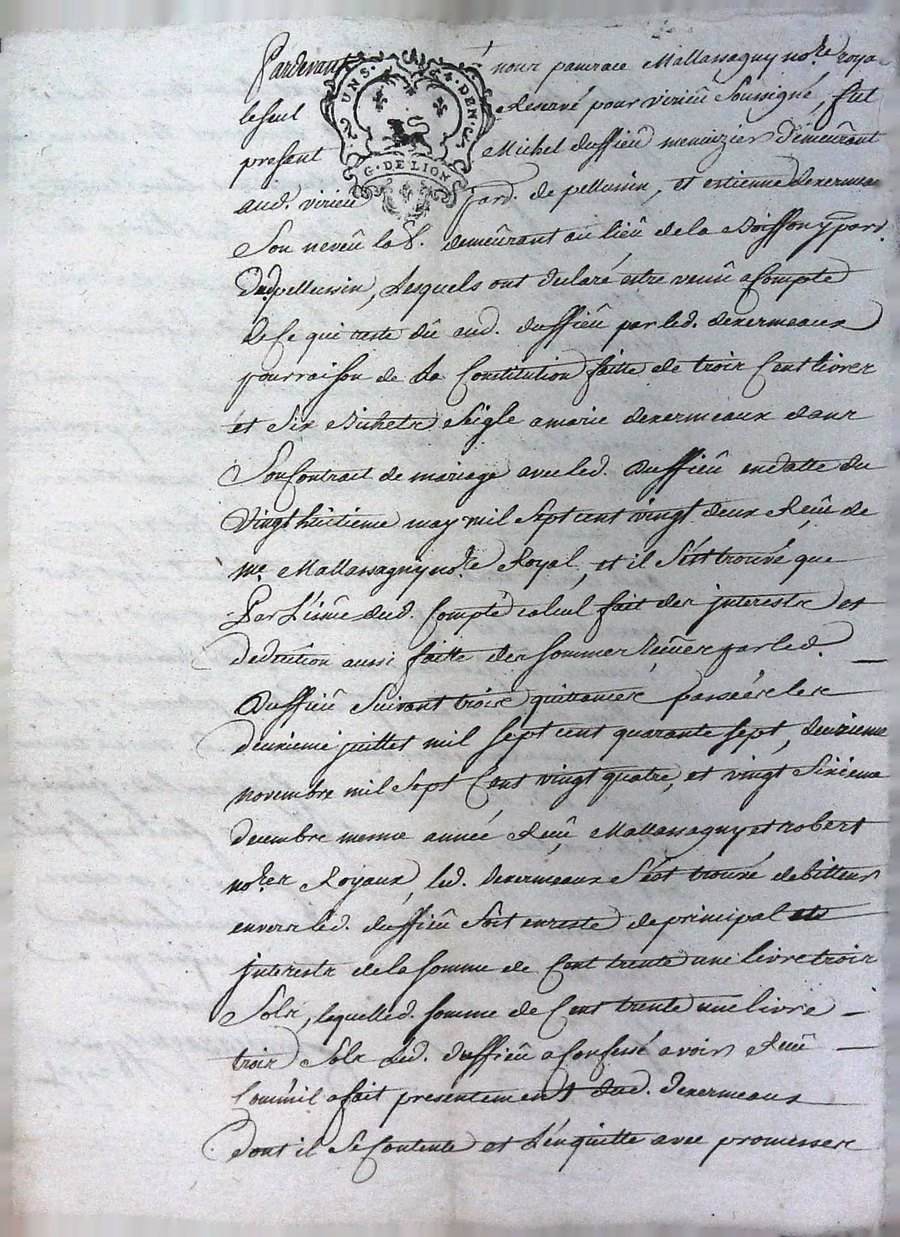 Pardevant nous pancrace Mallassagny no.re roya
le seul Reservé pour virieû Soussigné, fut
present Michel duffieû menuizier demeurant
aud. virieû par. de pellussin, et estienne dexermeau
Son neveû la.b. demeûrant au lieû de la Boissony par.
dud. pellussin, Lesquels ont declaré estre venû a Compte
de Ce qui reste dû aud. duffieû par led. dexermeaux
pour raison de La Constitution faitte de trois Cent livres
et Six Bichets Seigle a marie dexermeaux dans
Son Contrait de mariage avec led. duffieû en datte du
Vingt huitieme may mil Sept cent vingt deux Reçû de
me. Mallassagny no.re Royal, et il S'est trouvé que
Par L'issûe dud. Compte calcul fait des interestz et
deduction aussi faitte des Sommes Reçûes par led.
duffieû Suivant trois quittances passées les
deuxieme juillet mil Sept cent quarante Sept, deuxieme
novembre mil Sept Cens vingt quatre, et vingt Sixieme
decembre mesme année Reçû Mallassagny et robert
no.res Royaux, led. dexermeaux S'est trouvé debitteur
envers led. duffieû Soit en reste de principal et
interestz de la Somme de Cent trente une livre trois
Solz, laquelle d. Somme de Cent trente une livre
trois Solz Led. duffieû a Confessé avoir Reçû
Comm'il a fait presentement dud. dexermeaux
dont il Se Contente et L'en quitte avec promesses